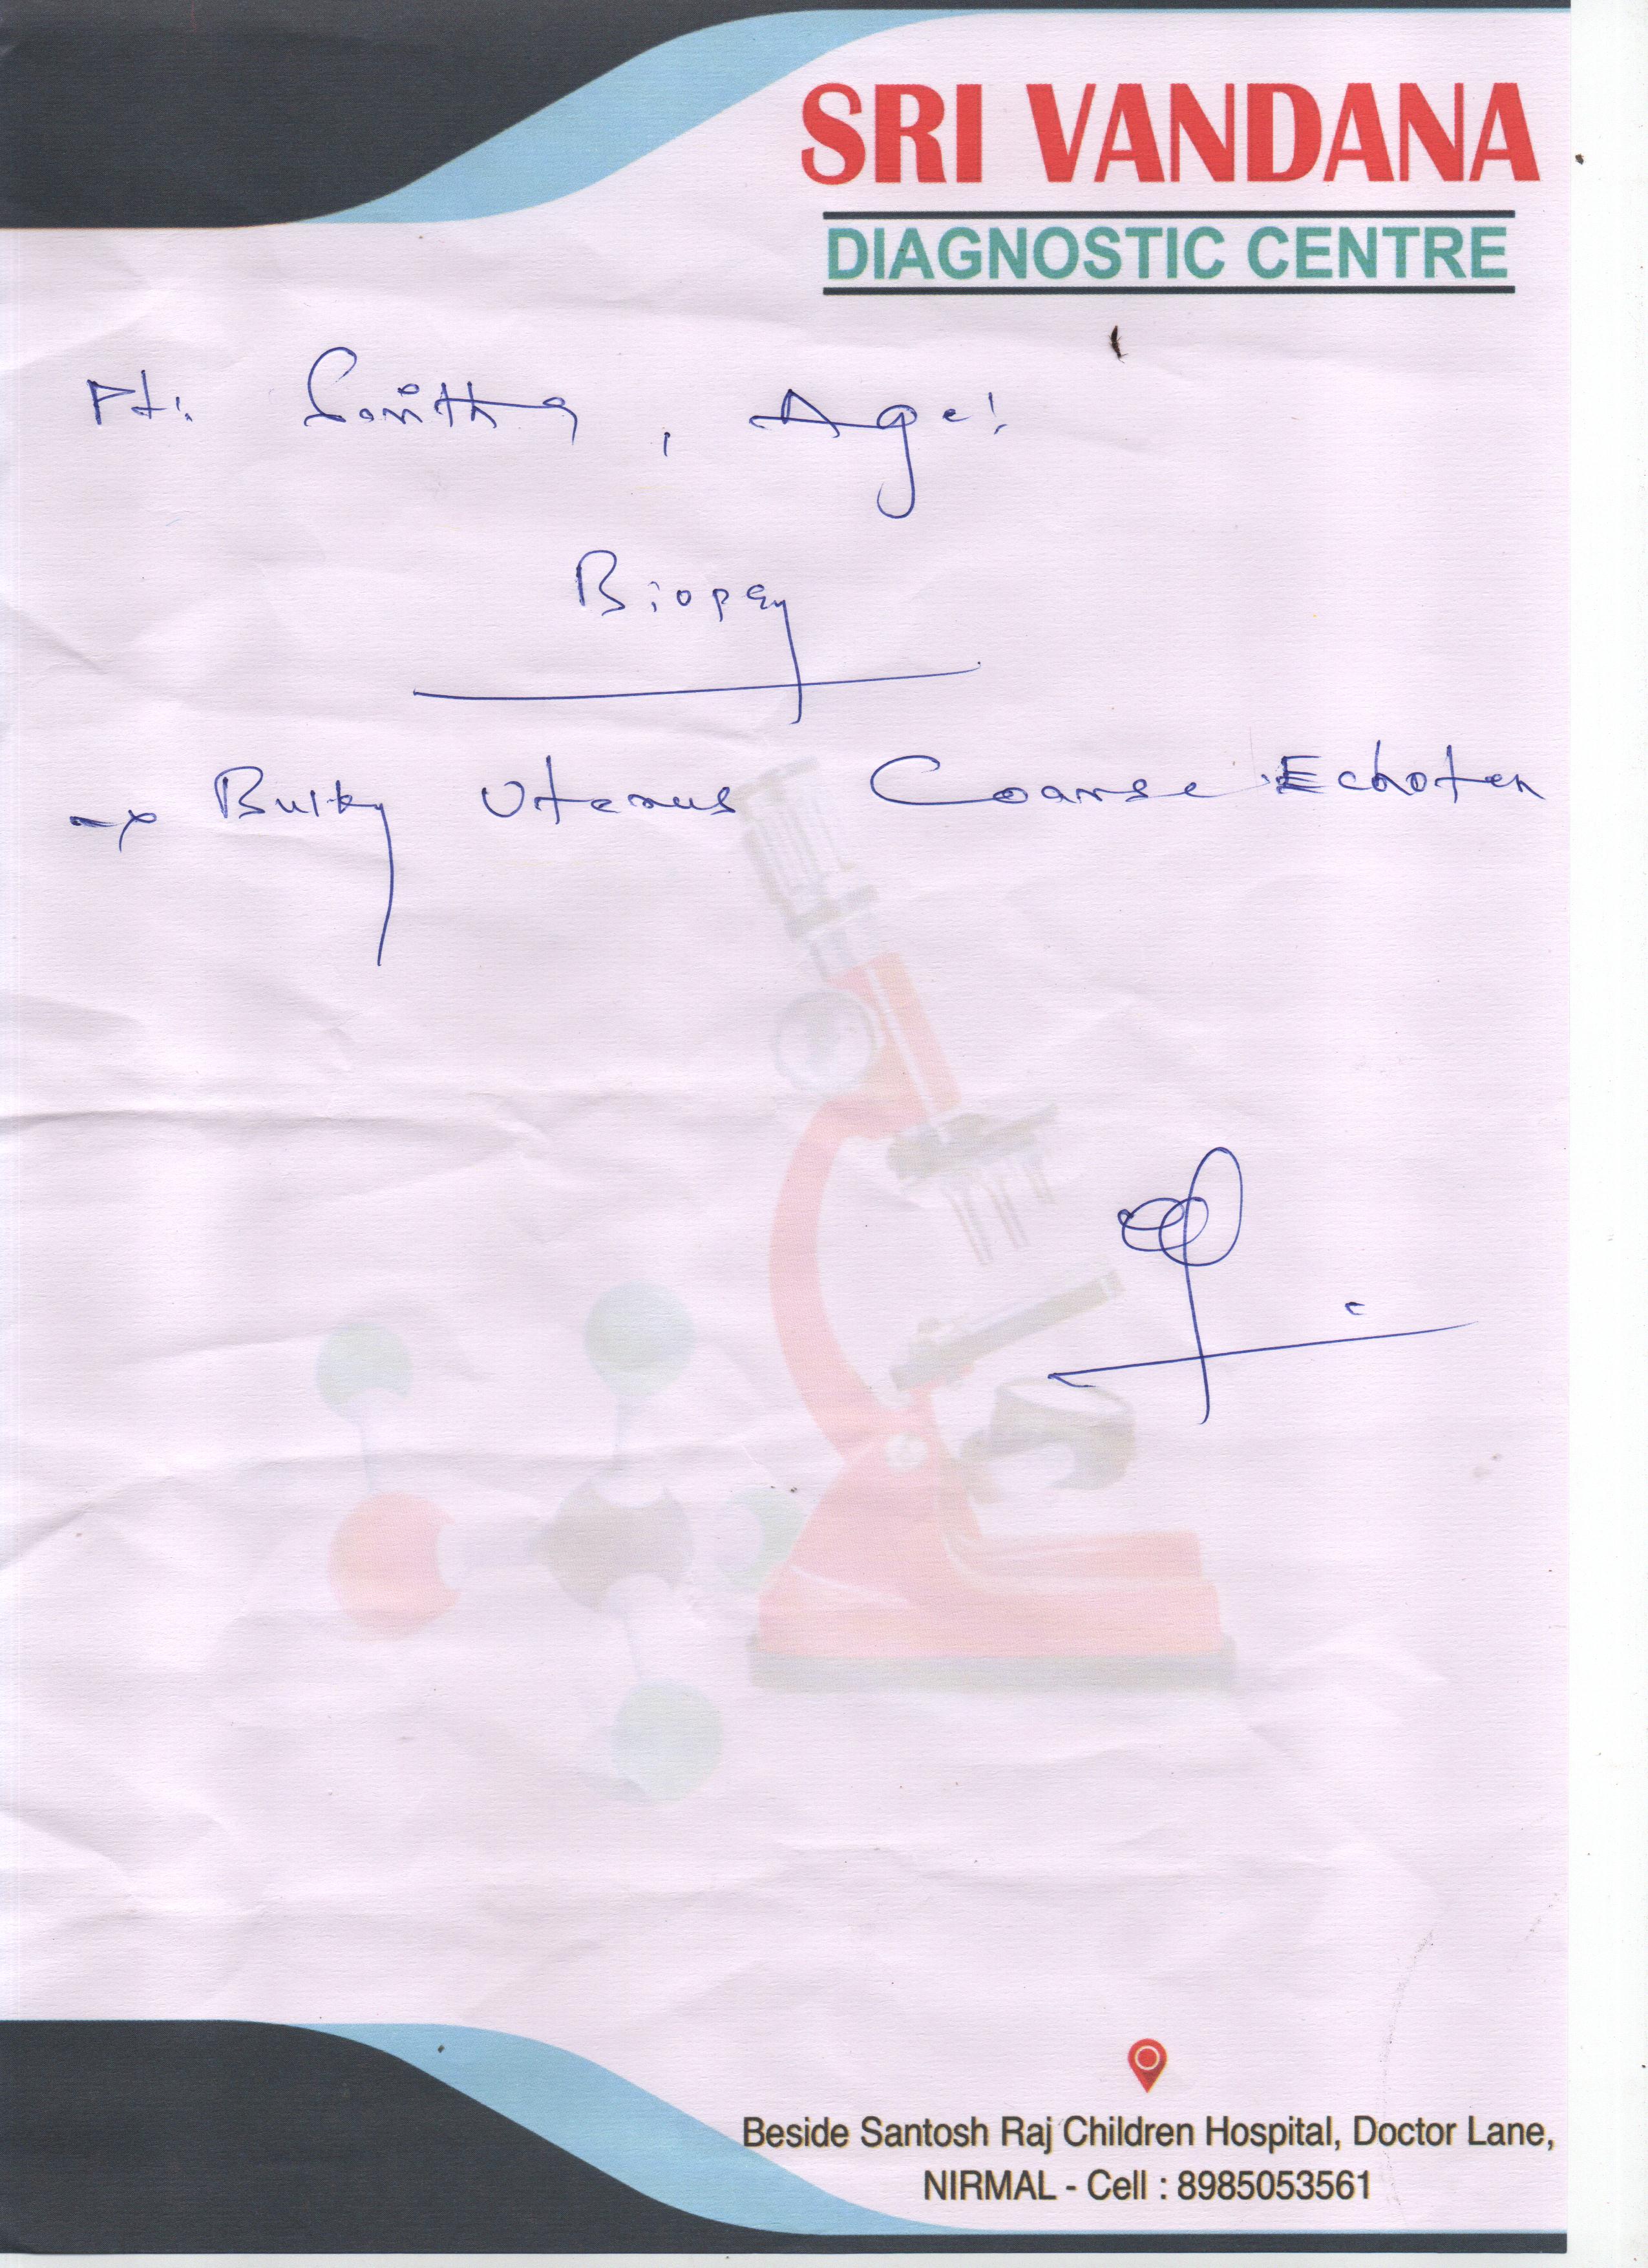 SRI VANDANA
DIAGNOSTIC CENTRE
Pt: , Age:
Biopsy
→ Bulky Uterus Coarse Echoten
Beside Santosh Raj Children Hospital, Doctor Lane,
NIRMAL - Cell : 8985053561